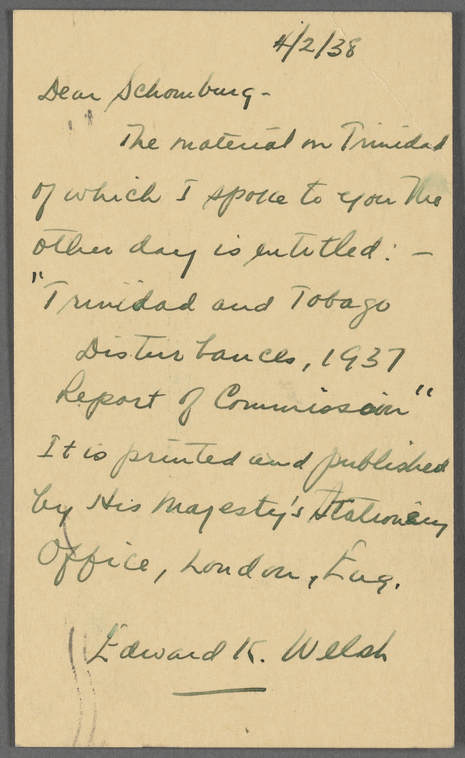 4/2/38
Dear Schomburg -
The material on Trinidad
of which I spoke to you the
other day is entitled: -
"Trinidad and Tobago
Disturbances, 1937
Report of Commission"
It is printed and published
by His Majesty's Stationery
Office, London, Eng.
Edward K. Welsh